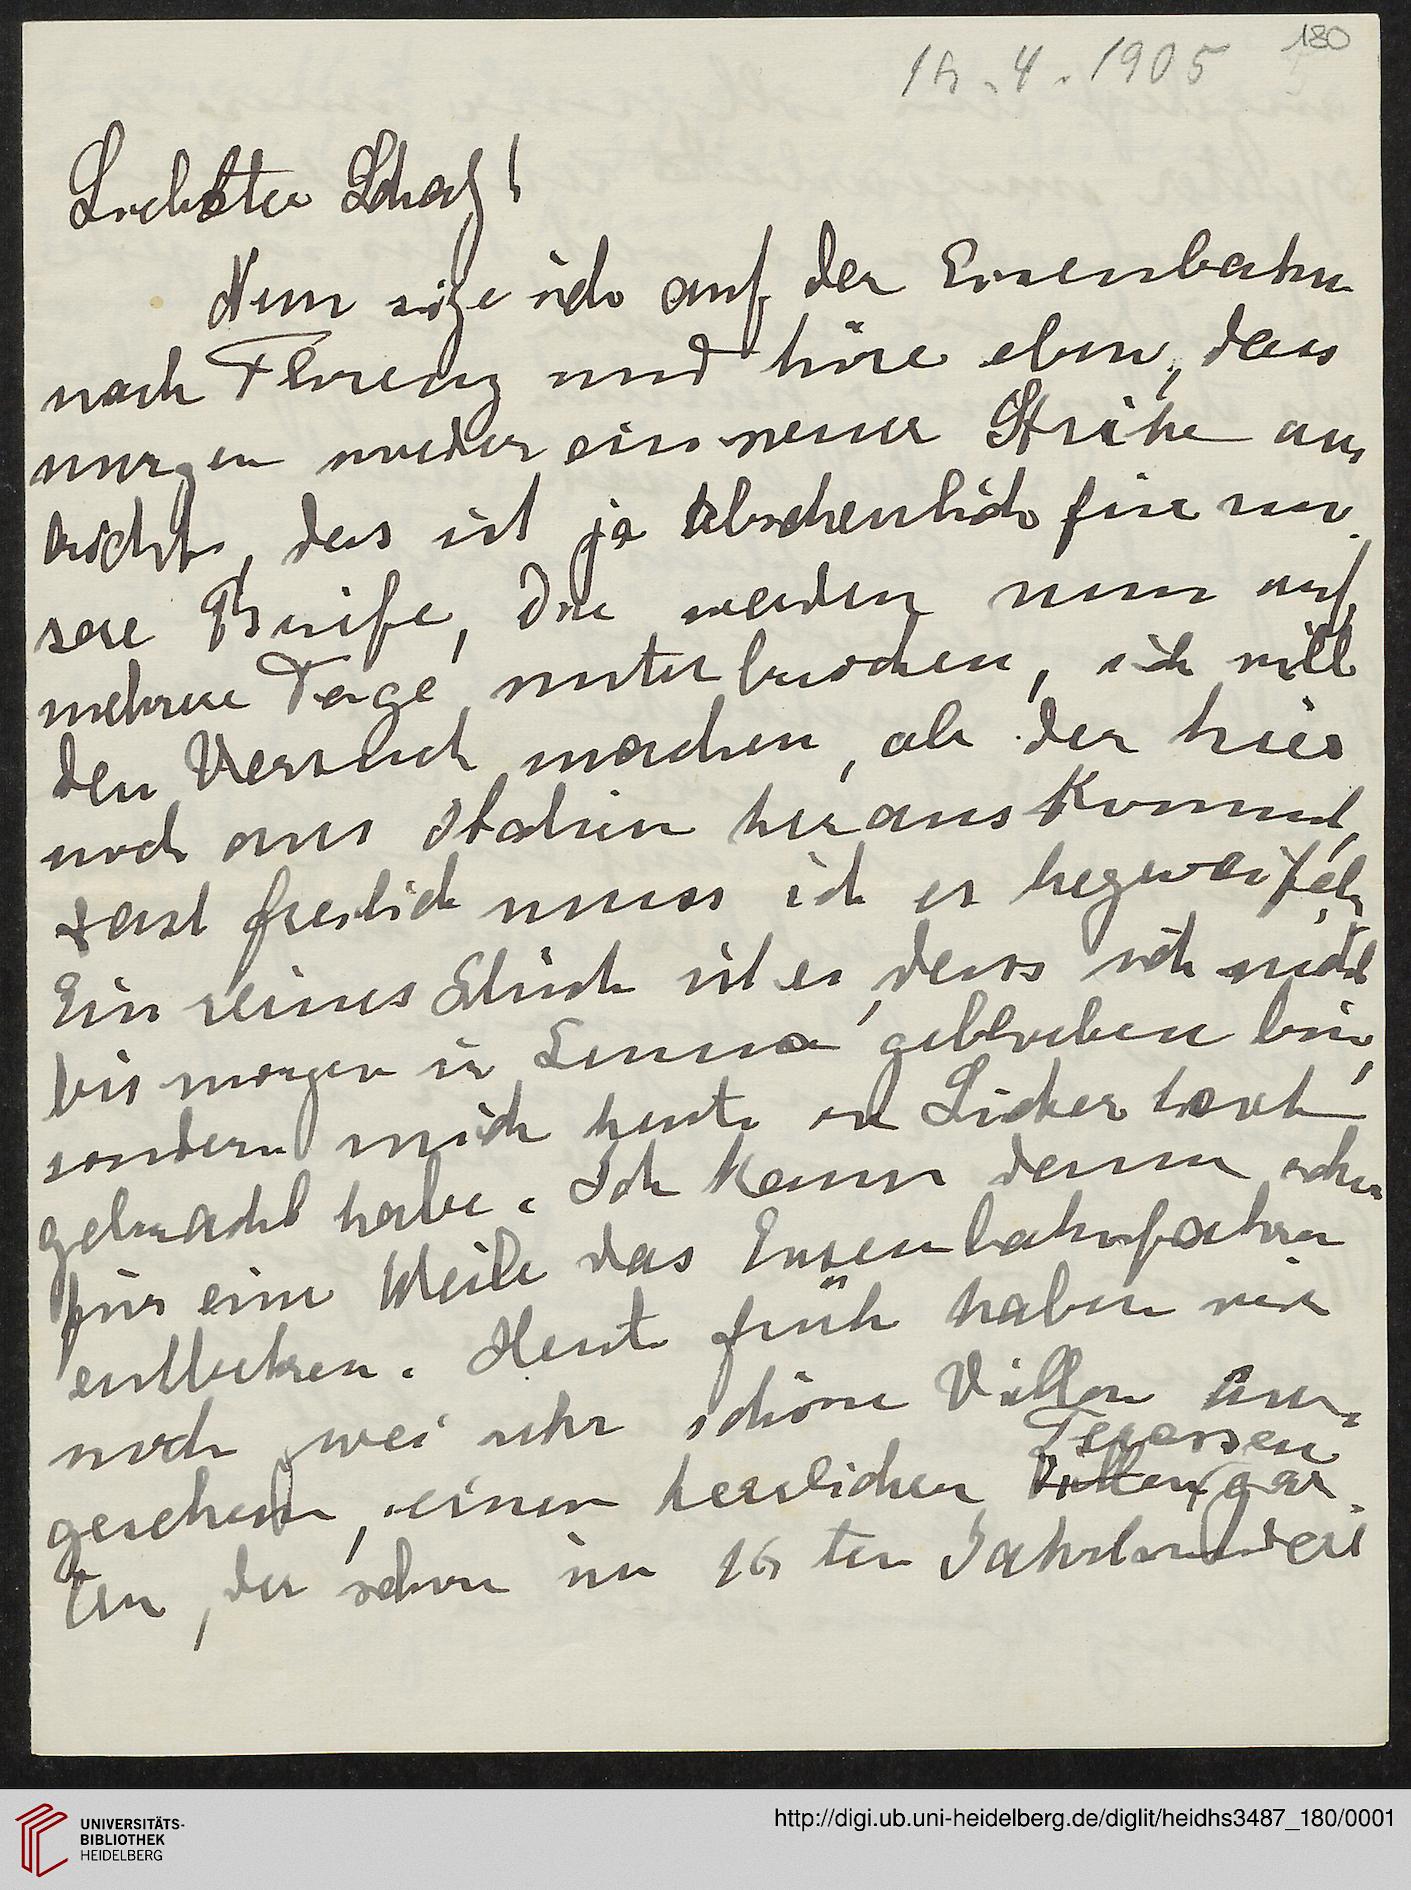 180
16.4.1905
Liebster Schatz!
Nun sitze ich auf der Eisenbahn
nach Florenz und höre eben, dass
morgen wieder ein neuer Strike aus
bricht, das ist ja abscheulich für un-
sere Briefe, die werden nun auf
mehrere Tage unterbrochen, ich will
den Versuch machen, ob der hier
noch aus Italien herauskommt,
fast freilich muss ich es bezweifeln
Ein reines Glück ist es, dass ich nicht
bis morgen in Genua geblieben bin,
sondern mich heute in Sicherheit
gebracht habe. Ich kann dann schon
für eine Weile das Eisenbahnfahren
entbehren. Heute früh haben wir
noch zwei sehr schöne Villen an-
gesehen, einen herrlichen Terassen
Villengar-
ten, der schon im 16ten Jahrhundert
UNIVERSITÄTS-
BIBLIOTHEK
HEIDELBERG
http://digi.ub.uni-heidelberg.de/diglit/heidhs3487_180/0001